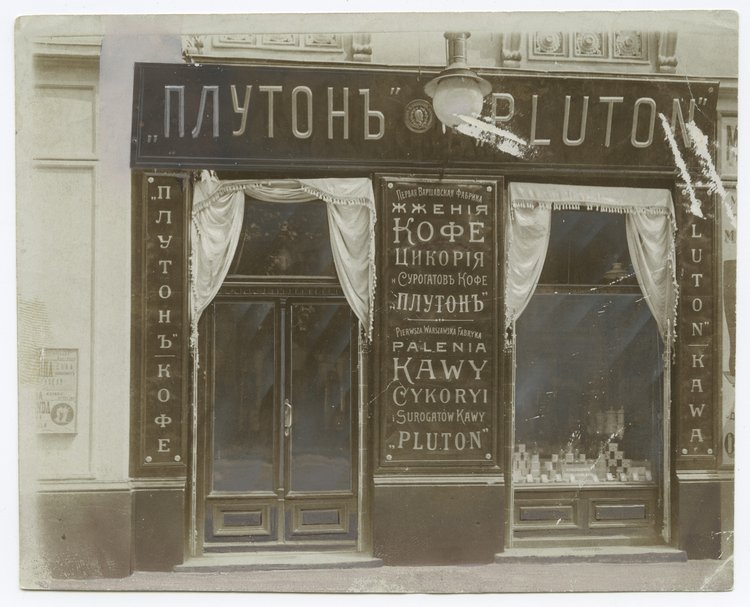 „ПЛУТОНЪ" „PLUTON"
„ПЛУТОНЪ" КОФЕ
Первая Варшавская Фабрика
ЖЖЕНІЯ
КОФЕ
ЦИКОРІЯ
и СУРОГАТОВЪ КОФЕ
„ПЛУТОНЪ"
Pierwsza Warszawska Fabryka
PALENIA
KAWY
CYKORYI
i SUROGATÓW KAWY
„PLUTON"
PLUTON" KAWA